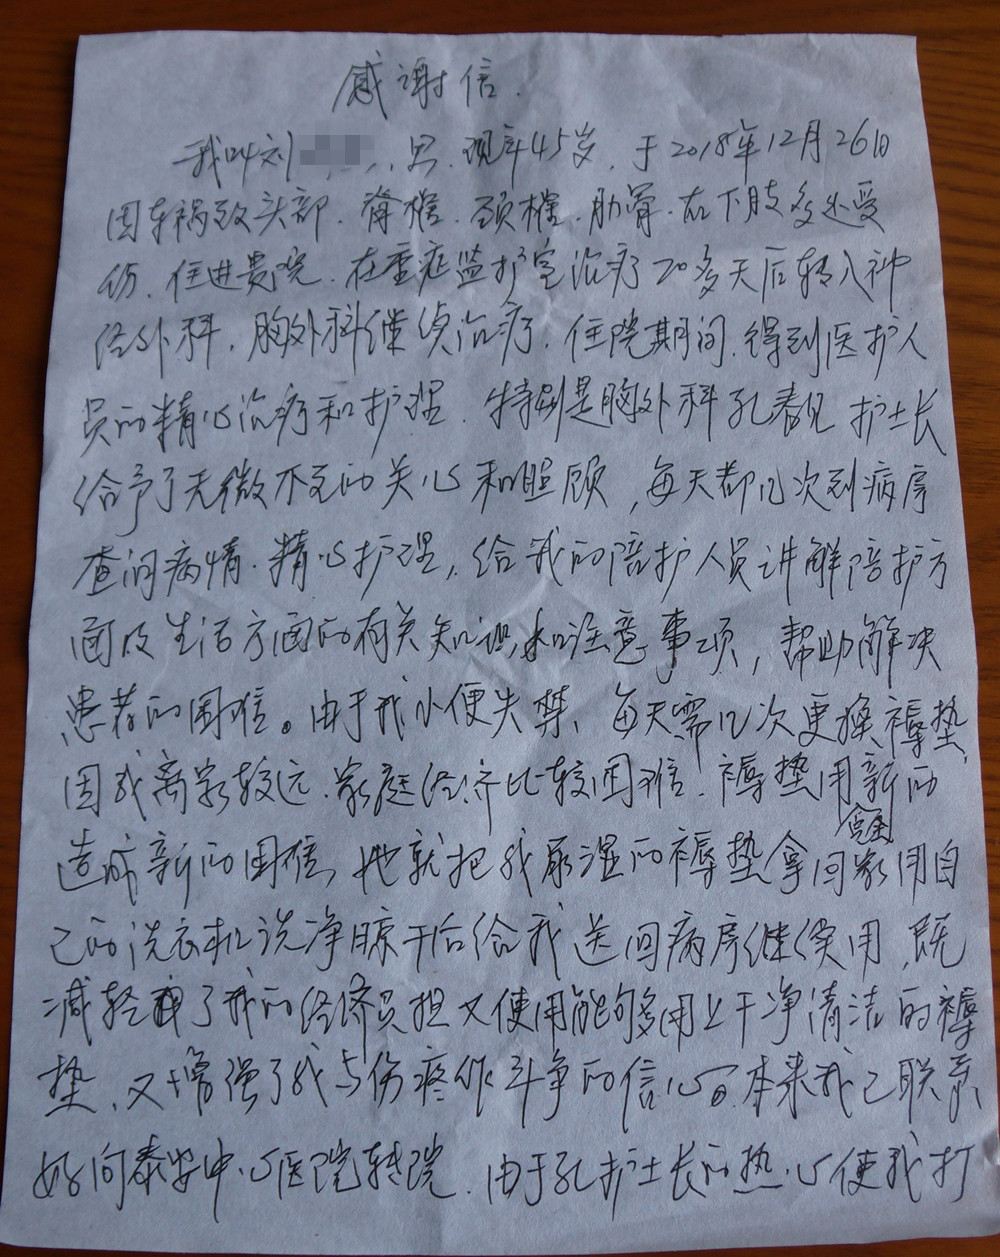 感谢信.
我叫刘 , 男. 现年45岁, 于2018年12月26日
因车祸致头部. 脊椎. 颈椎. 肋骨. 右下肢多处受
伤. 住进贵院. 在重症监护室治疗20多天后转入神
经外科. 胸外科继续治疗. 住院期间. 得到医护人
员的精心治疗和护理. 特别是胸外科孔春见护士长
给予了无微不至的关心和照顾, 每天都几次到病房
查问病情. 精心护理, 给我的陪护人员讲解陪护方
面及生活方面的有关知识, 和注意事项, 帮助解决
患者的困难。由于我小便失禁、每天需几次更换褥垫,
因我离家较远. 家庭经济比较困难. 褥垫用新的
造成新的困难, 她就把我尿湿的褥垫拿回家用自
己的洗衣机洗净晾干后给我送回病房继续使用, 既
减轻了我的经济负担又使用能够多用上干净清洁的褥
垫, 又增强了我与伤疼作斗争的信心. 本来我已联系
好向泰安中心医院转院. 由于孔护士长的热心使我打